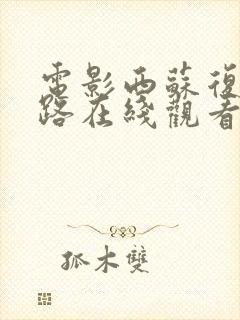 電影西蘇復
路在綫觀看
孤木雙